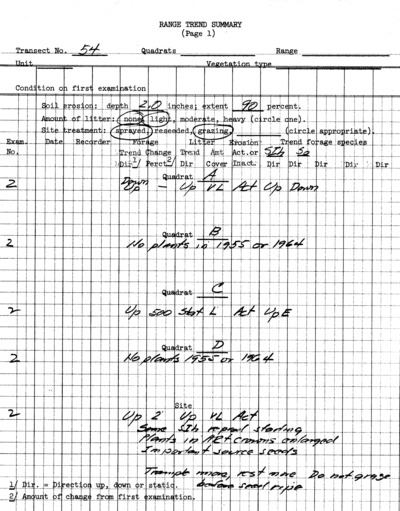 RANGE TREND SUMMARY
(Page 1)
Transect No. 54 Quadrats Range
Unit Vegetation type
Condition on first examination
Soil erosion: depth 2.0 inches; extent 90 percent.
Amount of litter: none, light, moderate, heavy (circle one).
Site treatment: sprayed, reseeded, grazing, (circle appropriate).
Exam. Date Recorder Forage Litter Erosion Trend forage species
No. Trend Change Trend Amt Act.or SIh So
Dir 1/ Perct 2/ Dir Cover Inact. Dir Dir Dir Dir Dir
Quadrat A
2 Up — Up VL Act Up Down
Quadrat B
2 No plants in 1955 or 1964
Quadrat C
2 Up 500 Stat L Act Up E
Quadrat D
2 No plants 1955 or 1964
Site
2 Up 2 Up VL Act
Some SIh reprod starting
Plants in ARt crowns enlarged
Important source seeds
Trample more, rest more Do not graze
before seed ripe
1/ Dir. = Direction up, down or static.
2/ Amount of change from first examination.